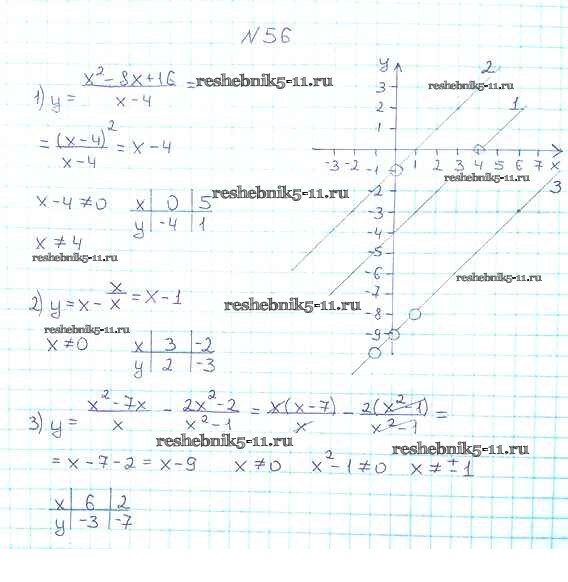 N 56
1) y = (x² - 8x + 16)/(x - 4) =
reshebnik5-11.ru
= (x - 4)²/(x - 4) = x - 4
x - 4 ≠ 0
x | 0 | 5
y | -4 | 1
reshebnik5-11.ru
x ≠ 4
reshebnik5-11.ru
2) y = x - x/x = x - 1
reshebnik5-11.ru
reshebnik5-11.ru
x ≠ 0
x | 3 | -2
y | 2 | -3
3) y = (x² - 7x)/x - (2x² - 2)/(x² - 1) = x(x - 7)/x - 2(x² - 1)/(x² - 1) =
reshebnik5-11.ru
reshebnik5-11.ru
= x - 7 - 2 = x - 9 x ≠ 0 x² - 1 ≠ 0 x ≠ ±1
x | 6 | 2
y | -3 | -7
y
2
3
reshebnik5-11.ru
2
1
1
-3 -2 1 2 3 4 5 6 7 x
-1
reshebnik5-11.ru
3
-2
-3
-4
-5
-6
reshebnik5-11.ru
-7
-8
-9